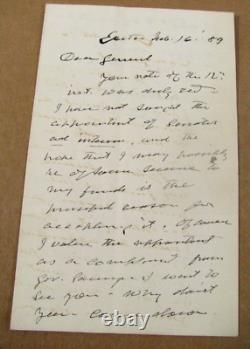 Exeter Feb. 16' 89
Dear General
Your note of the 12th
inst. was duly rec'd
I have not sought the
appointment of Senator
ad interim, and the
hope that I may possibly
be of some service to
my friends is the
principal reason for
accepting it. Of course
I value the appointment
as a compliment from
Gov. Sawyer. I want to
see you - Why don't
you come down
© 123RF.com